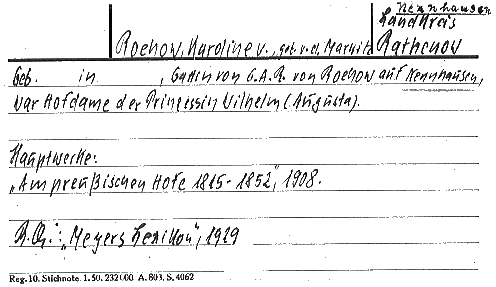 Nennhausen
Landkreis
Rochow, Karoline v., geb. v. d. Marwitz Rathenow
Geb. in , Gattin von G.A.R. von Rochow auf Nennhausen,
war Hofdame der Prinzessin Wilhelm (Augusta).
Hauptwerke:
„Am preußischen Hofe 1815-1852", 1908.
„Meyers Lexikon", 1929
Reg. 10. Stichnote. 1. 50. 232000 A. 803. S. 4062